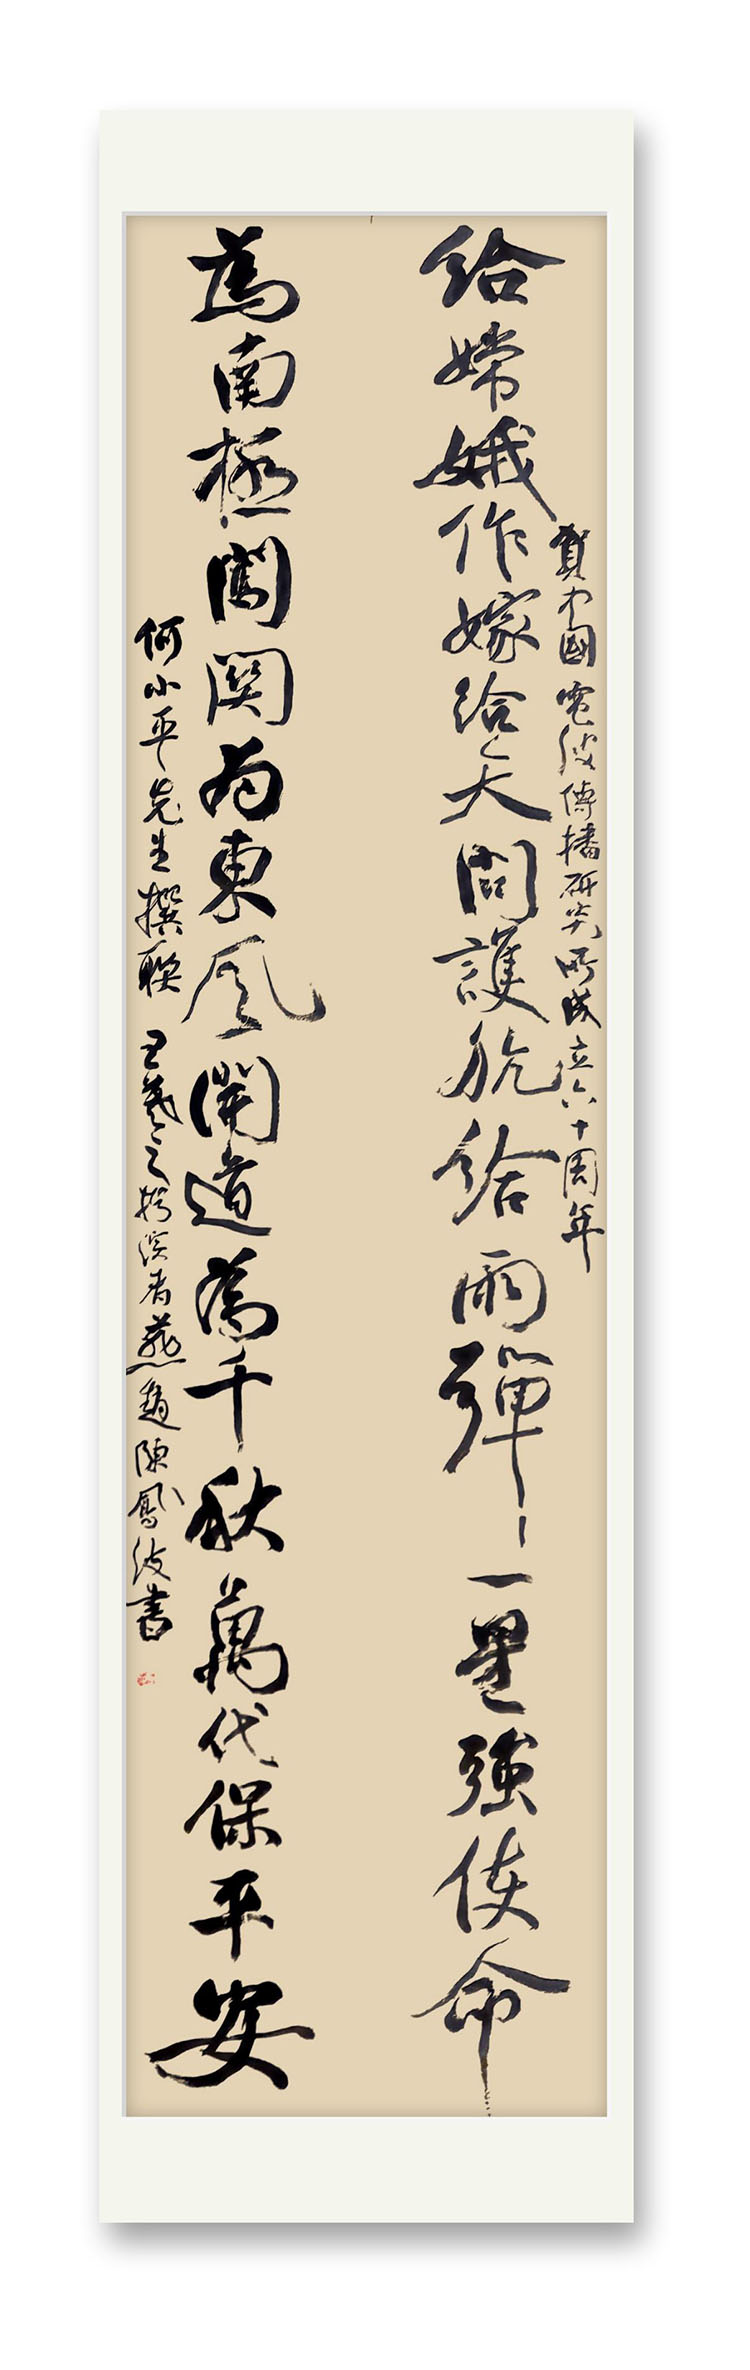 給嫦娥作嫁給天問護航給兩彈一星強使命
賀中國電波傳播研究所成立六十周年
為南極闖關為東風開道為千秋萬代保平安
何小平先生撰聯 王羲之 者燕趙陳鳳波書